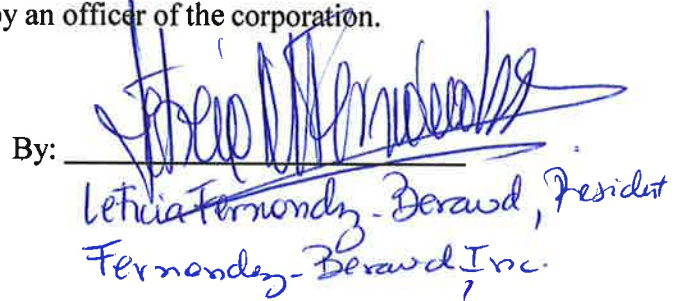 by an officer of the corporation.
By:
Leticia Fernandez-Beraud, President
Fernandez-Beraud Inc.